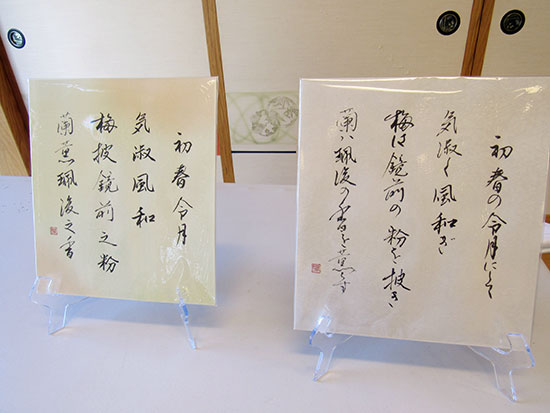 初春令月
気淑風和
梅披鏡前之粉
蘭薫珮後之香
初春の令月にして
気淑く風和ぎ
梅は鏡前の粉を披き
蘭は珮後の香を薫す